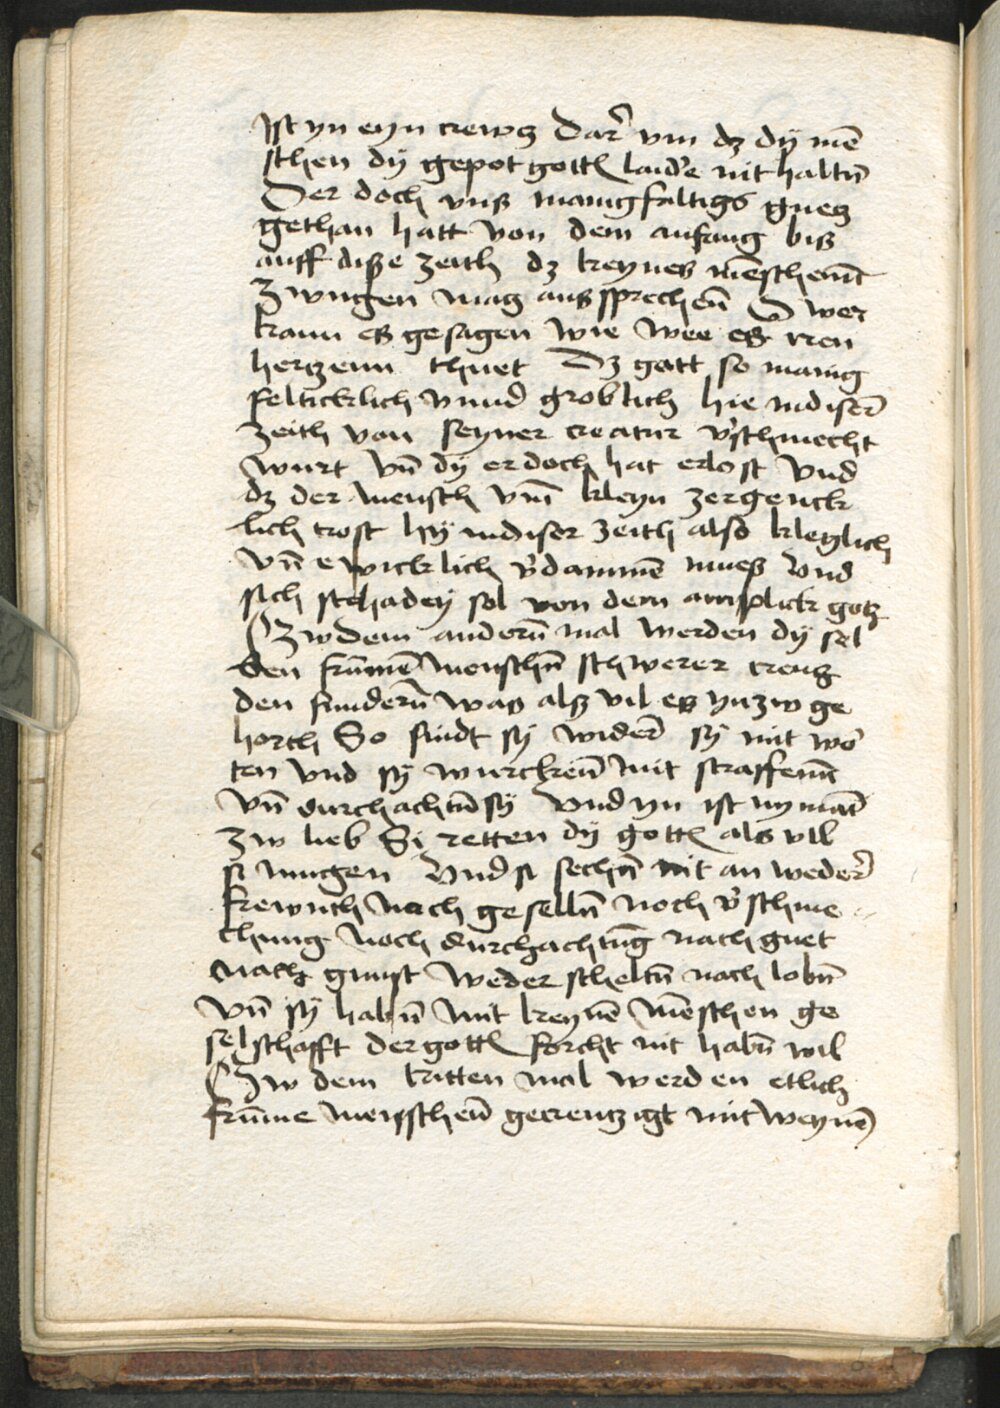 Ist yn eyn crewtz Dar̄ vm dz dÿ mē
schen dÿ gepot gottꝭ laid'e nit haltn̄
Der doch vnß manigfaltigs guetz
gethan hatt von dem anfang biß
auff disße zeith dz keynes mēschenn̄
zwngen mag aussprechen̄ O wer
kann eß gesagen wie wee eß iren
hertzenn thuet Dz gott so manig
felticklich vnnd groblich hie indiser̄
zeith von seyner creatur v'schmecht
wurt vn̄ dÿ er doch hat erlost vnd
dz der mensch vm̄ kleyn zergenck
lich trost hÿ indiser zeith also kleglich
vn̄ ewicklich v'dammē mueß vnd
sich schadeÿ sol von dem antplick gotz
Zwdem anderū mal werden dÿ sel
ben frūmē menschn̄ schwerer creutz
den sunderū was alß vil eß ynzw ge
horth So sindt sÿ wider̄ sÿ mit wo
ten vnd sÿ wurcken̄ mit straffenn̄
vn̄ durchachtūsÿ vnd yn ist nyman̄
zw lieb Si retten dÿ gottꝭ als vil
si mugen vnd si sechn̄ nit an weder̄
frewnth noch geselln̄ noch v'schme
chung noch durchachtūg nach guet
nach gunst weder scheltn̄ noch lobn̄
vn̄ sÿ habn̄ mit keynē mēschen ge
selschafft der gottꝭ forcht nit habn̄ wil
Zw dem dritten mal werden etlich
frūme menschen̄ gecreutzigt mit weynē